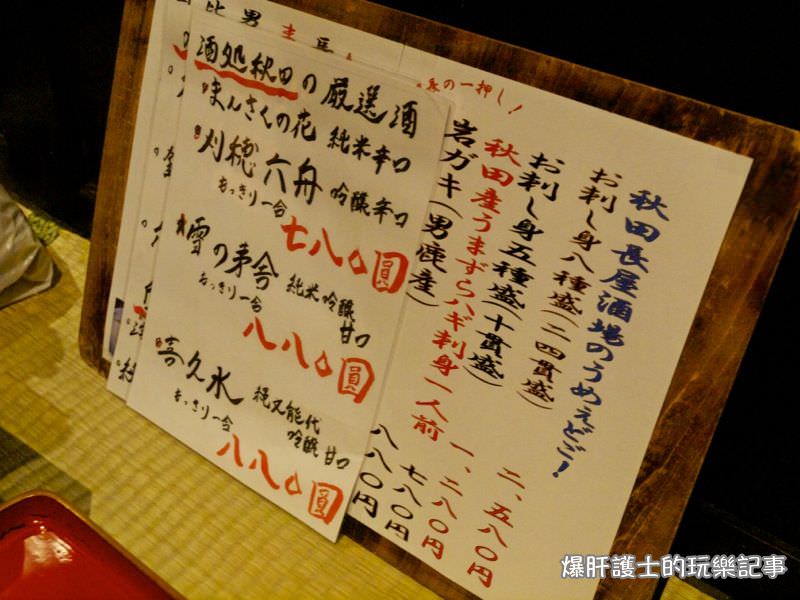 の一押し!
秋田長屋酒場のうめぇどご!
お刺し身八種盛(二四貫盛) 二、五八〇円
お刺し身五種盛(十貫盛) 一、二八〇円
秋田産うまずらハギ刺身一人前 七八〇円
岩ガキ(男鹿産) 八八〇円
酒処秋田の厳選酒
まんさくの花 純米辛口
刈穂 六舟 吟醸辛口
もっきり一合
七八〇圓
雪の茅舎 純米吟醸 甘口
もっきり一合
八八〇圓
喜久水 縄文能代 吟醸 甘口
もっきり一合
八八〇圓
爆肝護士的玩樂記事